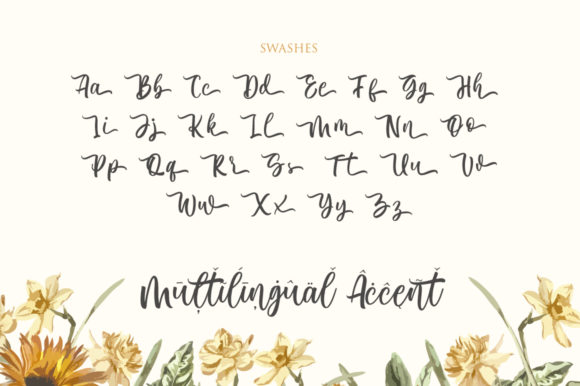 SWASHES
Aa Bb Cc Dd Ee Ff Gg Hh
Ii Jj Kk Ll Mm Nn Oo
Pp Qq Rr Ss Tt Uu Vv
Ww Xx Yy Zz
Mūlţǐĺīņġûäľ Âċċęñť